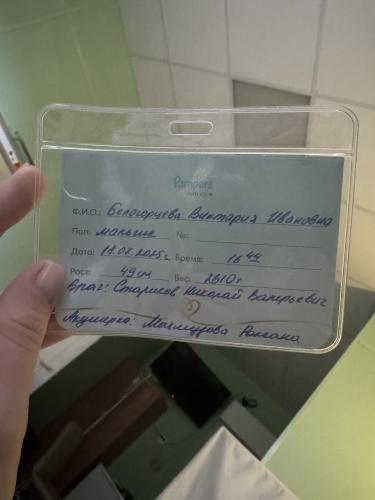 Pampers
Ф.И.О.: Белогорцева Виктория Ивановна
Пол: мальчик №:
Дата: 18.07.2025г. Время: 16 44
Рост: 49см Вес: 2610г
Врач: Стариков Николай Валерьевич
Акушерка: Махмудова Роксана